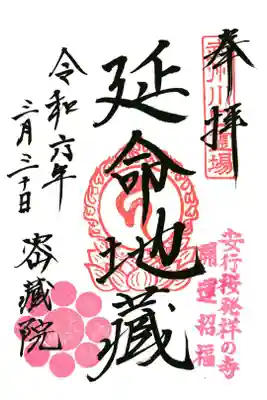 奉拝
安行桜発祥の寺
開運招福
延命地蔵
令和六年
三月三十日
密蔵院